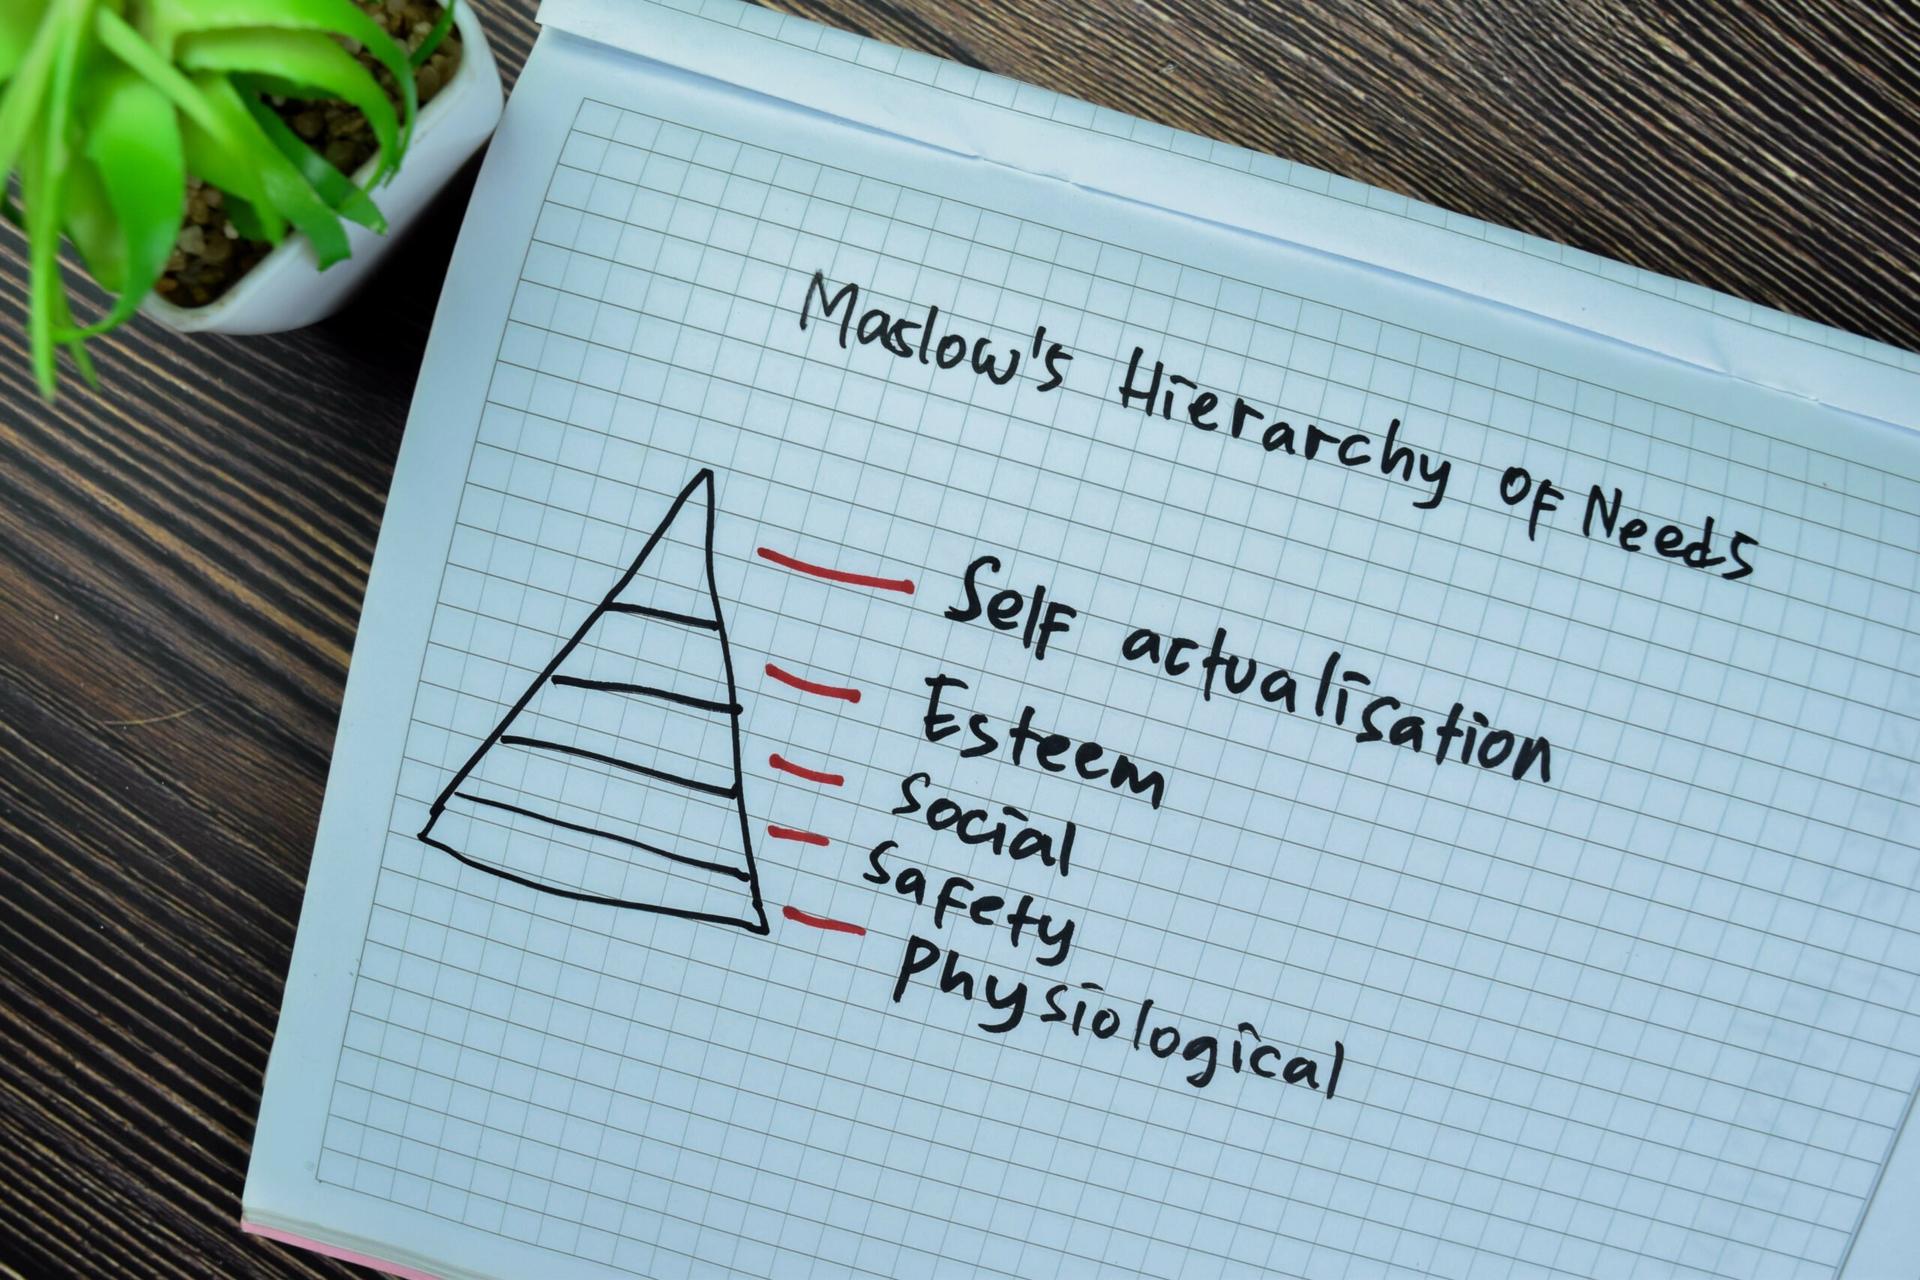 Maslow's Hierarchy of Needs
Self actualisation
Esteem
social
safety
physiological